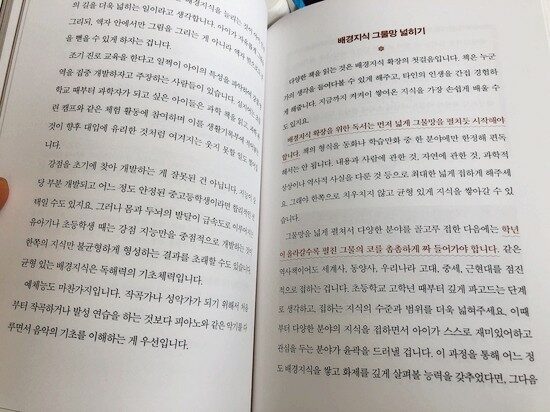 의 길을 넓혀주는 일이라고 생각합니다. 아이가
그리되, 액자 안에서만 그림을 그리는 게 아니라
을 뻗을 수 있게 하자는 겁니다.
조기 진로 교육을 한다고 일찍이 아이의 특성을 파악하여
역을 집중 개발하자고 주장하는 사람들이 있습니다.
학교 때부터 과학자가 되고 싶은 아이들은 과학 책을 읽고
런 캠프와 같은 체험 활동에 참여하며 이를 생활기록부에
것이 향후 대입에 유리한 것처럼 여겨지는 웃지 못할 일도
강점을 초기에 찾아 개발하는 게 잘못된 건 아닙니다. 지금이
당 부분 개발되고 어느 정도 안정된 중고등학생이라면 합리적인
택일 수도 있지요. 그러나 몸과 두뇌의 발달이 급속도로 이루어지는
유아기나 초등학생 때는 강점 지능만을 중점적으로 개발하는 것이
한쪽의 지식만 불균형하게 형성하는 결과를 초래할 수도 있습니다.
균형 있는 배경지식은 독해력의 기초체력입니다.
예체능도 마찬가지입니다. 작곡가나 성악가가 되기 위해서 처음
부터 작곡하거나 발성 연습을 하는 것보다 피아노와 같은 악기를 다
루면서 음악의 기초를 이해하는 게 우선입니다.
배경지식 그물망 넓히기
다양한 책을 읽는 것은 배경지식 확장의 첫걸음입니다. 책은 누군
가의 생각을 들여다볼 수 있게 해주고, 타인의 인생을 간접 경험하
게 해줍니다. 지금까지 켜켜이 쌓여온 지식을 가장 손쉽게 배울 수
도 있지요.
배경지식 확장을 위한 독서는 먼저 넓게 그물망을 펼치듯 시작해야
합니다. 책의 형식을 동화나 학습만화 중 한 분야에만 한정해 편독
해서는 안 됩니다. 내용과 사람에 관한 것, 자연에 관한 것, 과학적
상상이나 역사적 사실을 다룬 것 등으로 최대한 넓게 접하게 해주세
요. 그래야 한쪽으로 치우치지 않고 균형 있게 지식을 쌓아갈 수 있
습니다.
그물망을 넓게 펼쳐서 다양한 분야를 골고루 접한 다음에는 학년
이 올라갈수록 펼친 그물의 코를 촘촘하게 짜 들어가야 합니다. 같은
역사책이어도 세계사, 동양사, 우리나라 고대, 중세, 근현대를 점진
적으로 접하는 겁니다. 초등학교 고학년 때부터 깊게 파고드는 단계
로 생각하고, 접하는 지식의 수준과 범위를 더욱 넓혀주세요. 이때
부터 다양한 분야의 지식을 접하면서 아이가 스스로 재미있어하고
관심을 두는 분야가 윤곽을 드러낼 겁니다. 이 과정을 통해 어느 정
도 배경지식을 쌓고 화제를 깊게 살펴볼 능력을 갖추었다면, 그다음